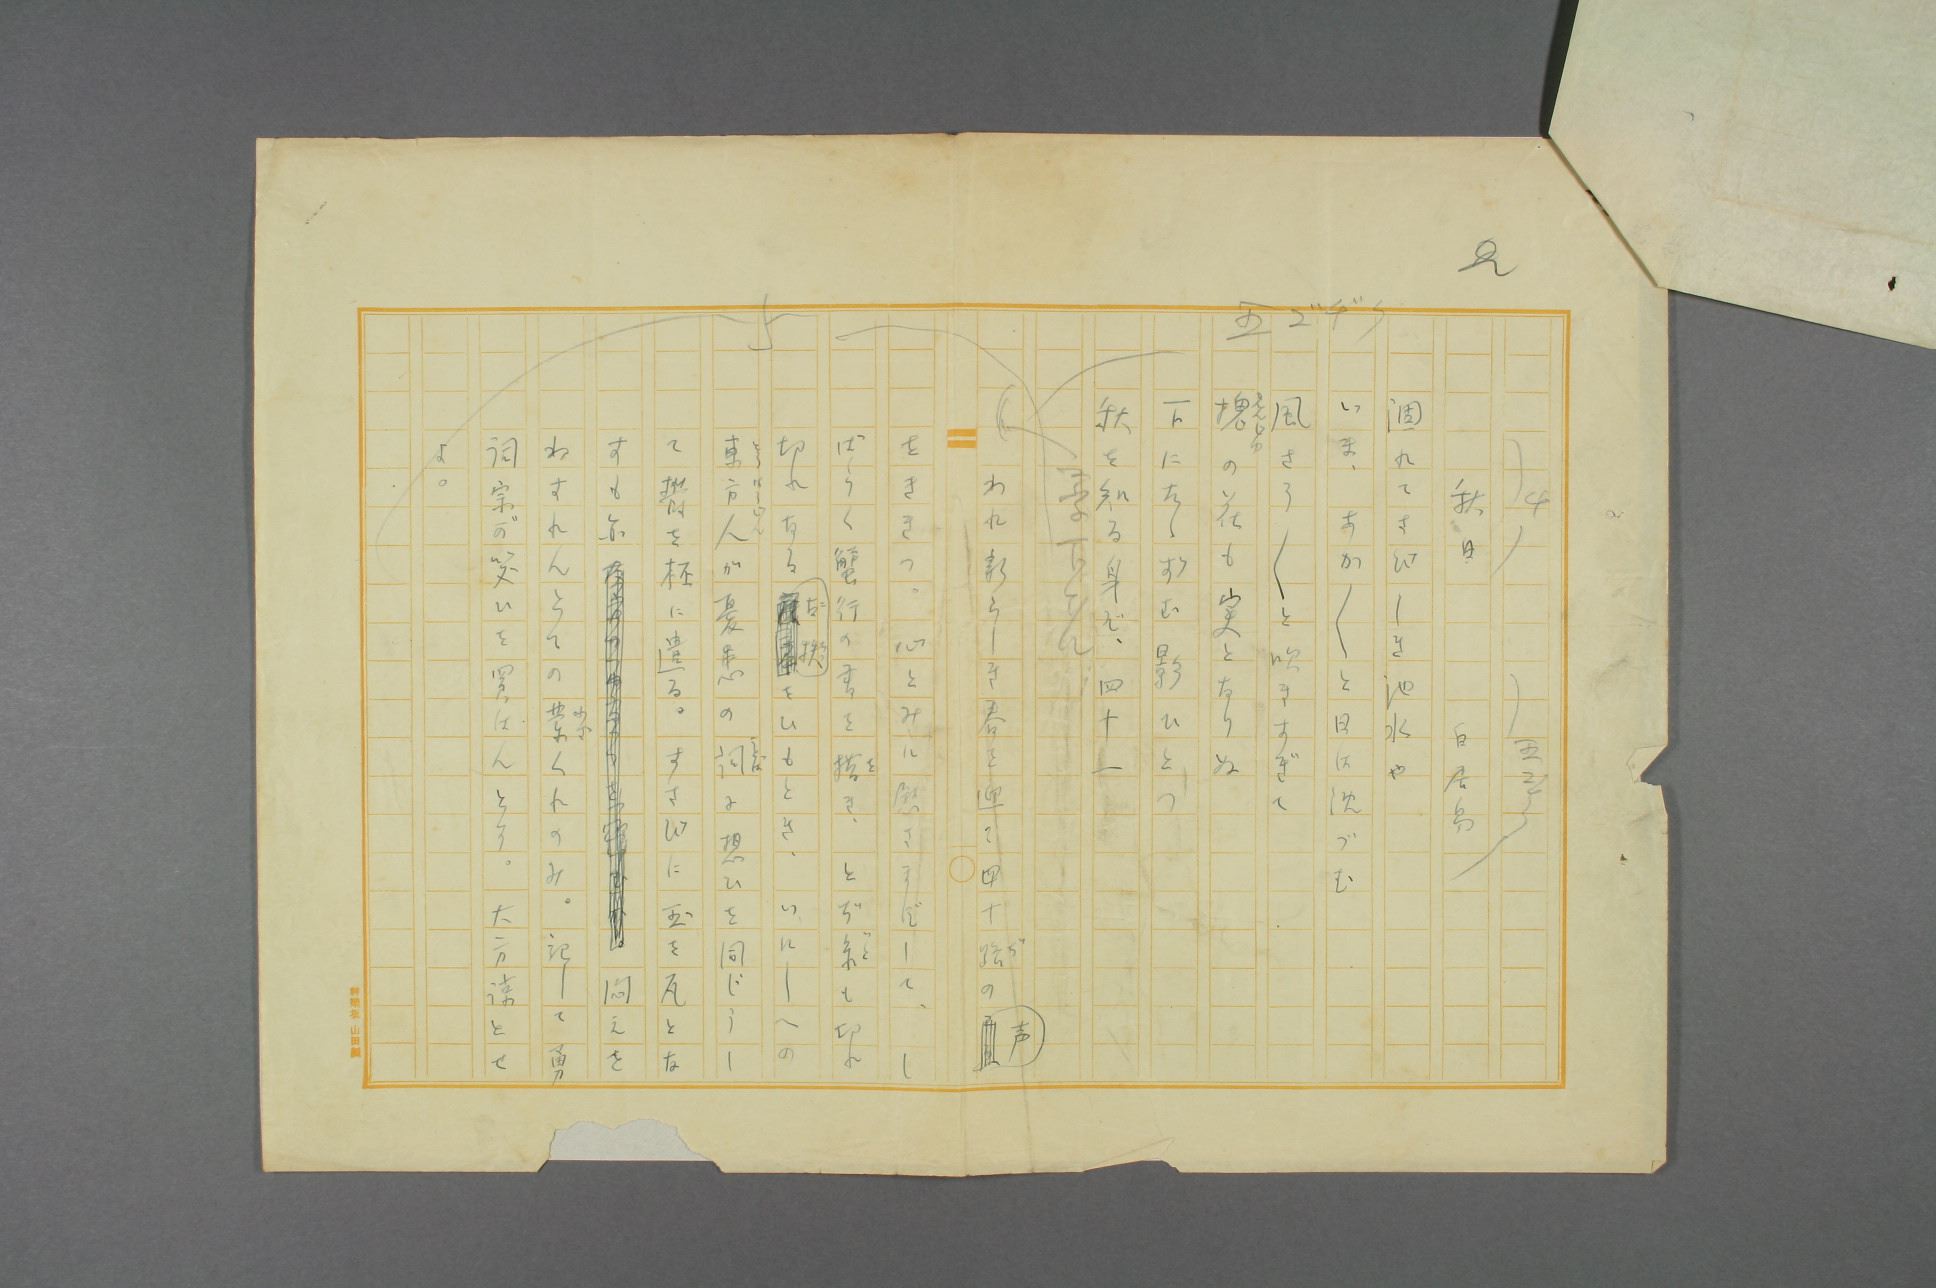 秋日　白居易
涸れてさびしき池水や
いま、あか〳〵と日は沈づむ
風さう〳〵と吹きすぎて
槐の花も実となりぬ
下にたゝずむ影ひとつ
秋を知る身ぞ、四十一
われ新らしき春を迎て四十路の声
をききつ。心とみに慰さまずして、し
ばらく蟹行の書を措き、とぢ糸も切れ
切れなる古帙をひもとき、いにしへの
東方人が憂愁の詞に想ひを同じうし
て鬱を杯に遣る。すさびに玉を瓦とな
すも亦悶えを
わすれんとての業くれのみ。記して勇
詞宗が笑ひを買はんとす。大方諒とせ
よ。